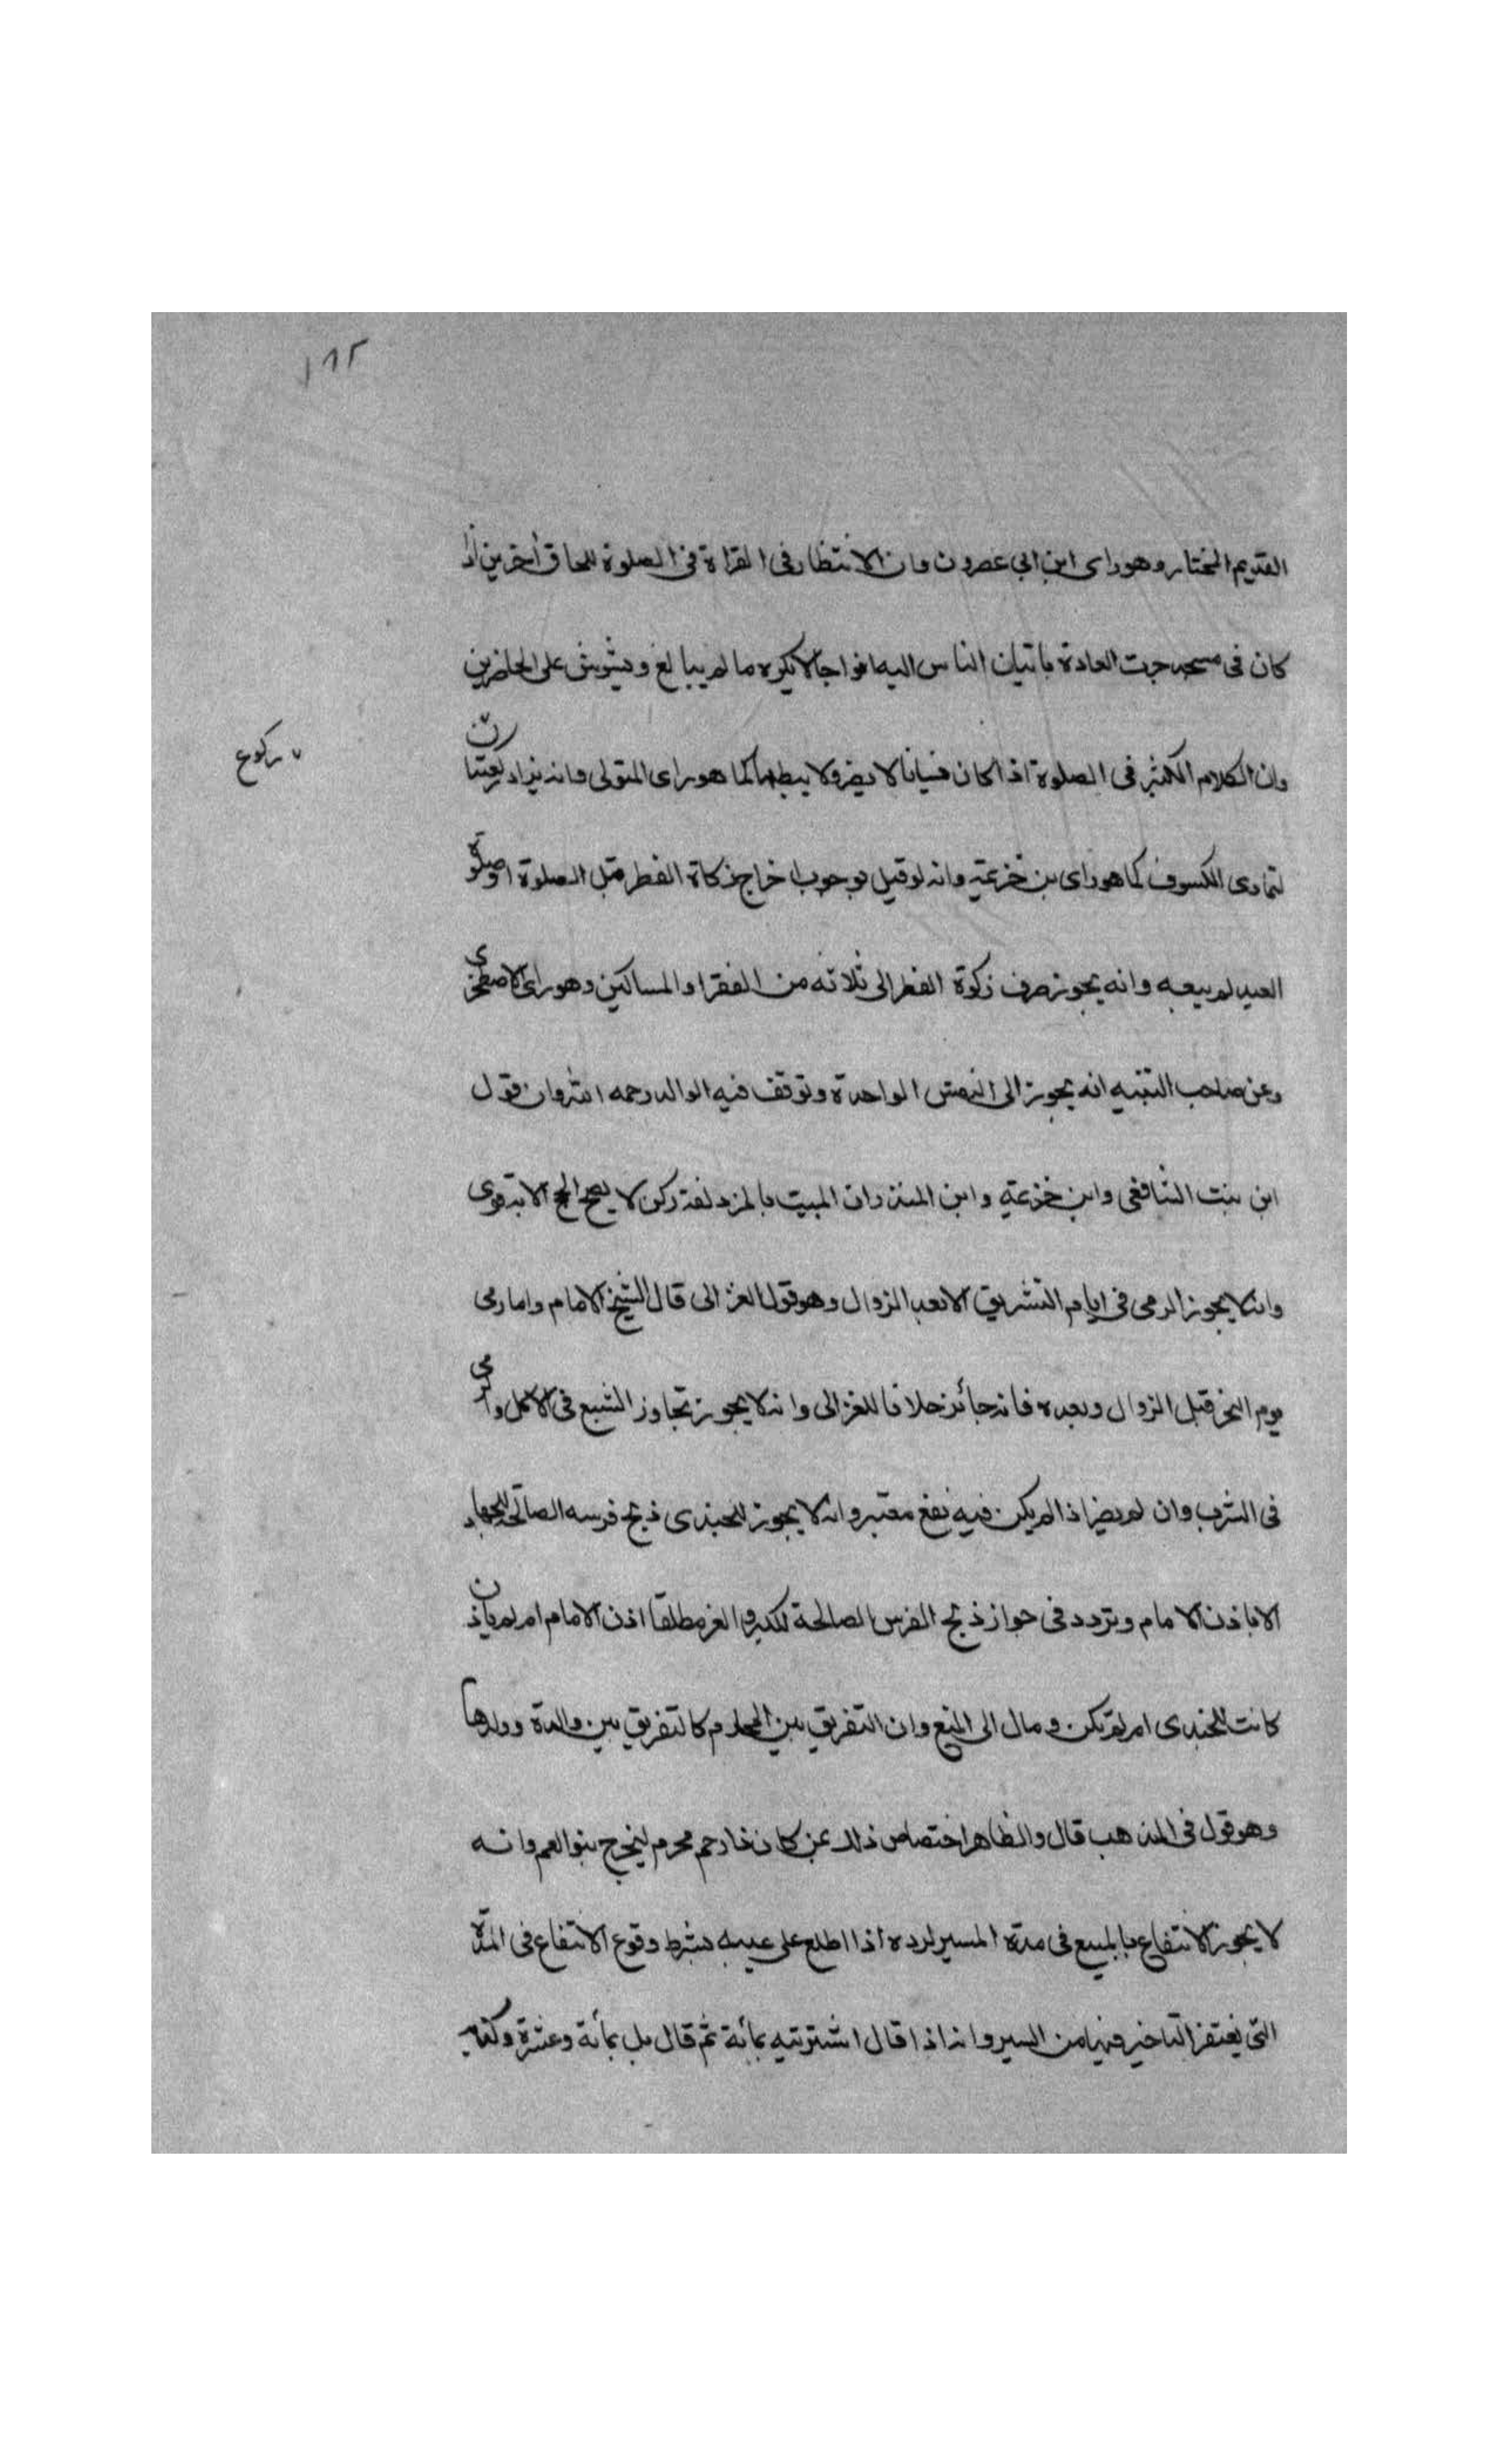 ١٩٢
القديم المختار وهو راى ابن ابي عصرون وان الانتظار فى القراة فى الصلوة للحاق اخرين اذا
كان فى مسجد جرت العادة باتيان الناس اليه افواجا لا يكره ما لم يبالغ ويشوش على الحاضرين
وان الكلام الكثير فى الصلوة اذا كان نسيانا لا يضر ولا يبطلها كما هو راى المتولى وانه يزاد ركعتان
ركوع
لتمادى الكسوف كما هو راى بن خزيمة وانه لو قيل بوجوب اخراج زكاة الفطر قبل الصلوة او صلوة
العيد لم يبعد وانه يجوز صرف زكوة الفطر الى ثلاثه من الفقرا والمساكين وهو راى الاصطخرى
وعن صاحب التنبيه انه يجوز الى النفس الواحدة وتوقف فيه الوالد رحمه الله وان قول
ابن بنت الشافعى وابن خزيمة وابن المنذر ان المبيت بالمزدلفة ركن لا يصح الحج الا به قوى
وانه لا يجوز الرمى فى ايام التشريق الا بعد الزوال وهو قول الغزالى قال الشيخ الامام واما رمى
يوم النحر قبل الزوال وبعده فانه جائز خلافا للغزالى وانه لا يجوز تجاوز الشبع فى الاكل والرى
فى الشرب وان لم يضر اذا لم يكن فيه نفع معتبر وانه لا يجوز للجندى ذبح فرسه الصالح للجهاد
الا باذن الامام وتردد فى جواز ذبح الفرس الصالحة للكر والفر مطلقا اذن الامام ام لم ياذن
كانت للجندى ام لم تكن ومال الى المنع وان التفريق بين المحارم كالتفريق بين والدة وولدها
وهو قول فى المذهب قال والظاهر اختصاص ذلك بمن كان ذا رحم محرم ليخرج بنو العم وانه
لا يجوز الانتفاع بالمبيع فى مدة المسير لرده اذا اطلع على عيبه بشرط وقوع الانتفاع فى المدة
التى يغتفر التاخير فيها من السير وانه اذا قال اشتريته بمأية ثم قال بل بمأية وعشرة